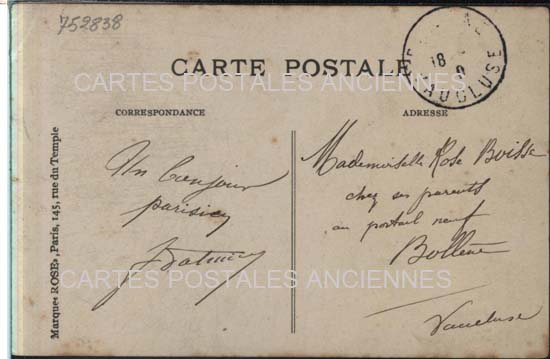 752838
CARTE POSTALE
CORRESPONDANCE
ADRESSE
18
VAUCLUSE
Un bonjour
parisien
Mademoiselle Rose Boisse
chez ses parents
au portail neuf
Bollène
Vaucluse
Marque « ROSE », Paris, 145, rue du Temple
CARTES POSTALES ANCIENNES
CARTES POSTALES ANCIENNES